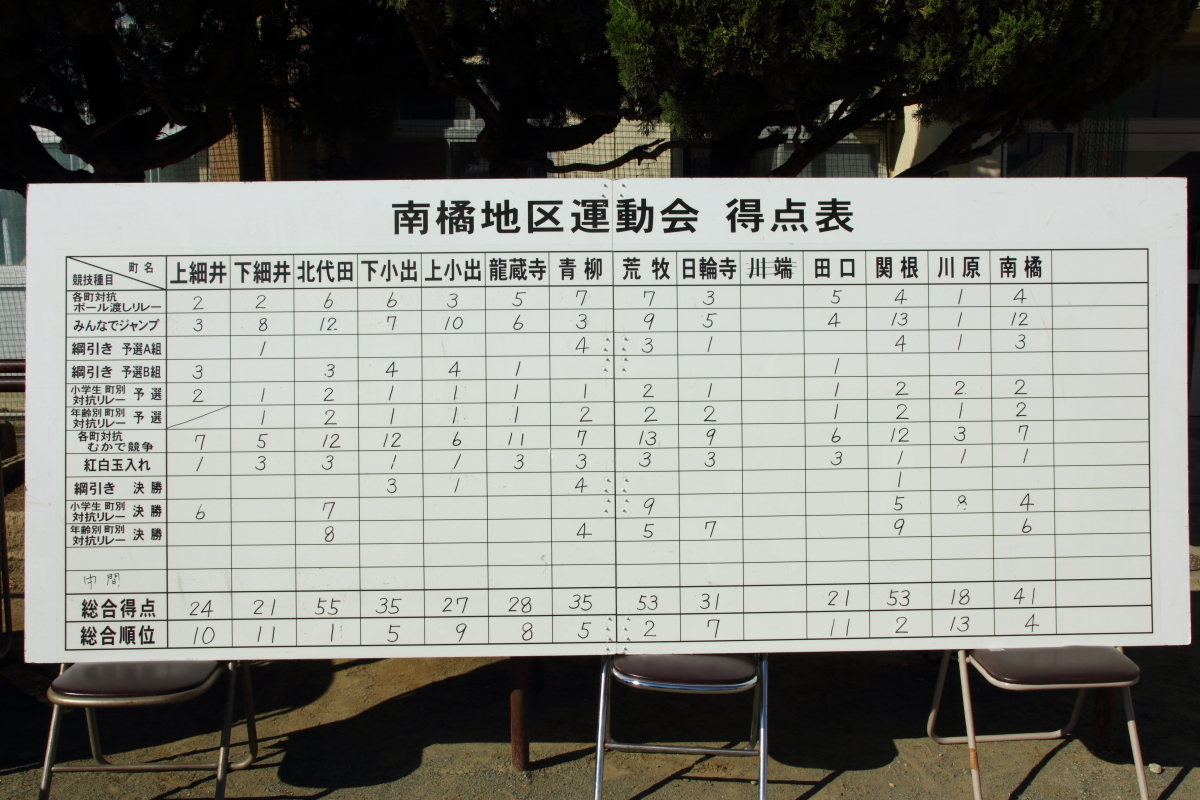 南橘地区運動会 得点表
競技種目 町名 上細井 下細井 北代田 下小出 上小出 龍蔵寺 青柳 荒牧 日輪寺 川端 田口 関根 川原 南橘
各町対抗 ボール渡しリレー 2 2 6 6 3 5 7 7 3 5 4 1 4
みんなでジャンプ 3 8 12 7 10 6 3 9 5 4 13 1 12
綱引き 予選A組 1 4 3 1 4 1 3
綱引き 予選B組 3 3 4 4 1 1
小学生 町別 対抗リレー 予選 2 1 2 1 1 1 1 2 1 1 2 2 2
年齢別 町別 対抗リレー 予選 1 2 1 1 1 2 2 2 1 2 1 2
各町対抗 むかで競争 7 5 12 12 6 11 7 13 9 6 12 3 7
紅白玉入れ 1 3 3 1 1 3 3 3 3 3 1 1 1
綱引き 決勝 3 1 4 1
小学生 町別 対抗リレー 決勝 6 7 9 5 8 4
年齢別 町別 対抗リレー 決勝 8 4 5 7 9 6
中間
総合得点 24 21 55 35 27 28 35 53 31 21 53 18 41
総合順位 10 11 1 5 9 8 5 2 7 11 2 13 4